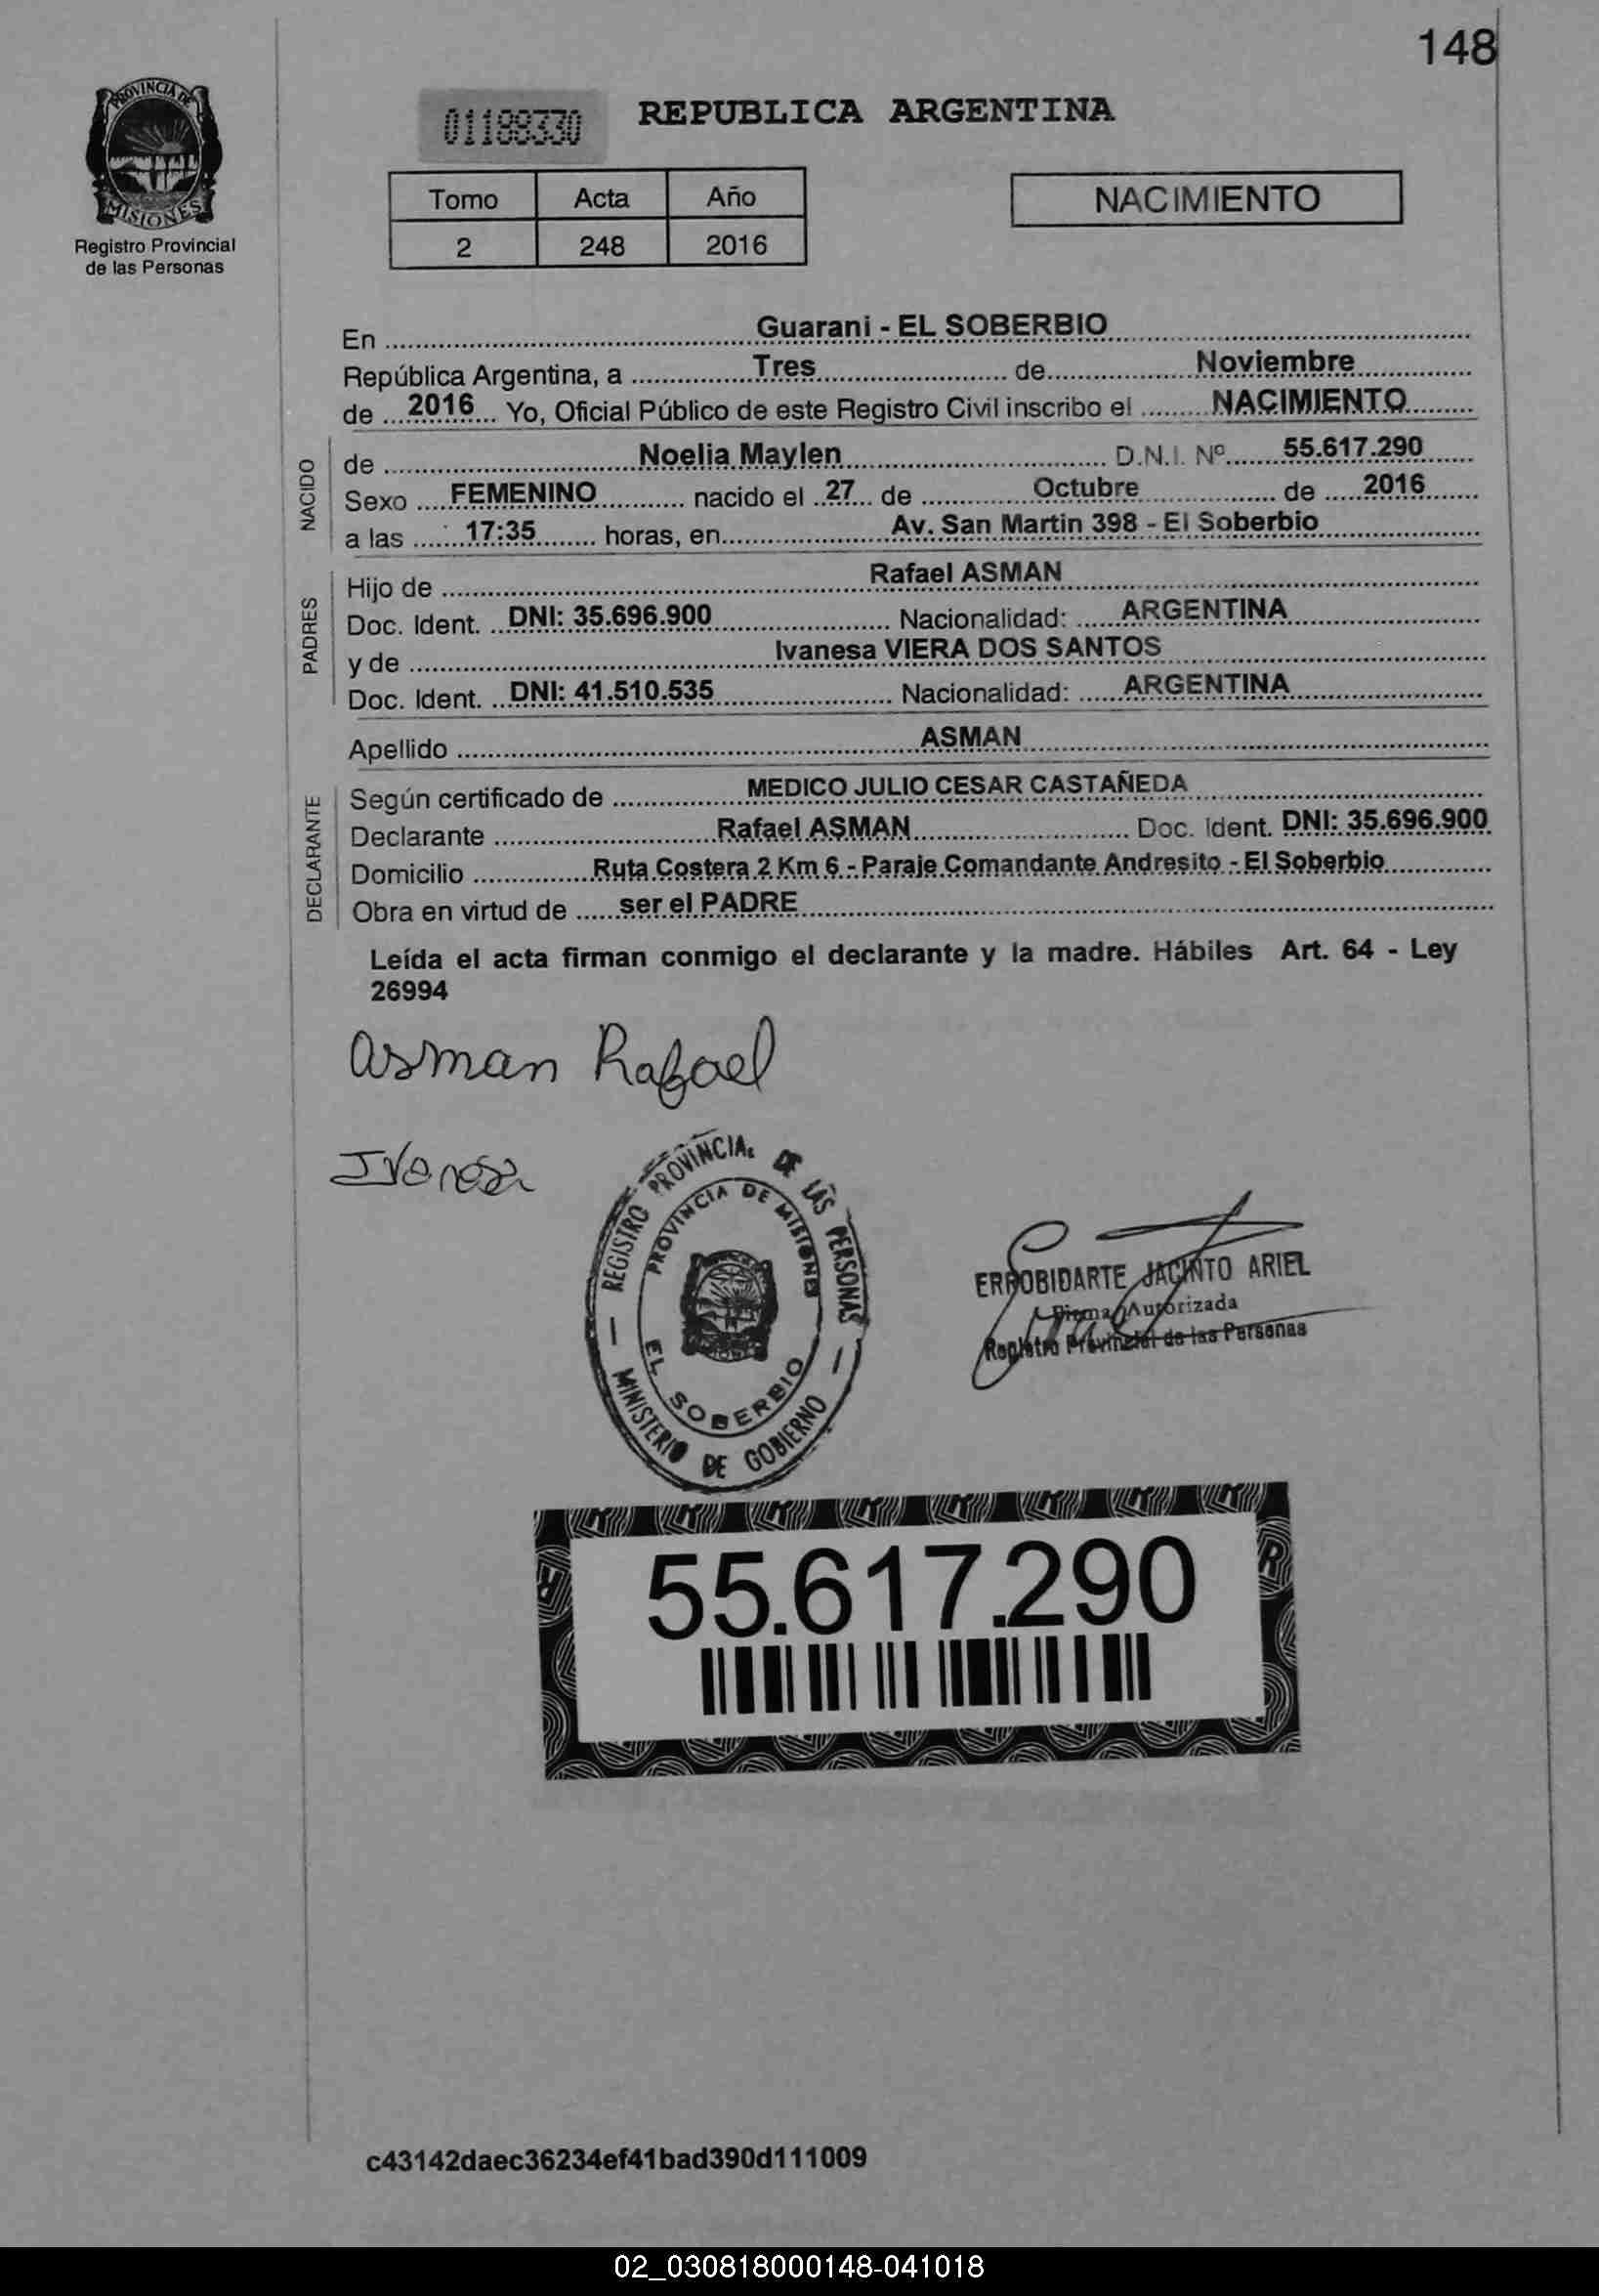 148
PROVINCIA DE
MISIONES
Registro Provincial
de las Personas
01188330
REPUBLICA ARGENTINA
Tomo Acta Año
2 248 2016
NACIMIENTO
En Guarani - EL SOBERBIO
República Argentina, a Tres de Noviembre
de 2016 Yo, Oficial Público de este Registro Civil inscribo el NACIMIENTO
NACIDO
de Noelia Maylen D.N.I. Nº 55.617.290
Sexo FEMENINO nacido el 27 de Octubre de 2016
a las 17:35 horas, en Av. San Martin 398 - El Soberbio
PADRES
Hijo de Rafael ASMAN
Doc. Ident. DNI: 35.696.900 Nacionalidad: ARGENTINA
y de Ivanesa VIERA DOS SANTOS
Doc. Ident. DNI: 41.510.535 Nacionalidad: ARGENTINA
Apellido ASMAN
DECLARANTE
Según certificado de MEDICO JULIO CESAR CASTAÑEDA
Declarante Rafael ASMAN Doc. Ident. DNI: 35.696.900
Domicilio Ruta Costera 2 Km 6 - Paraje Comandante Andresito - El Soberbio
Obra en virtud de ser el PADRE
Leída el acta firman conmigo el declarante y la madre. Hábiles Art. 64 - Ley
26994
Asman Rafael
Ivanesa
REGISTRO PROVINCIAL DE LAS PERSONAS
PROVINCIA DE MISIONES
EL SOBERBIO
MINISTERIO DE GOBIERNO
ERROBIDARTE JACINTO ARIEL
Firma Autorizada
Registro Provincial de las Personas
55.617.290
c43142daec36234ef41bad390d111009
02_030818000148-041018